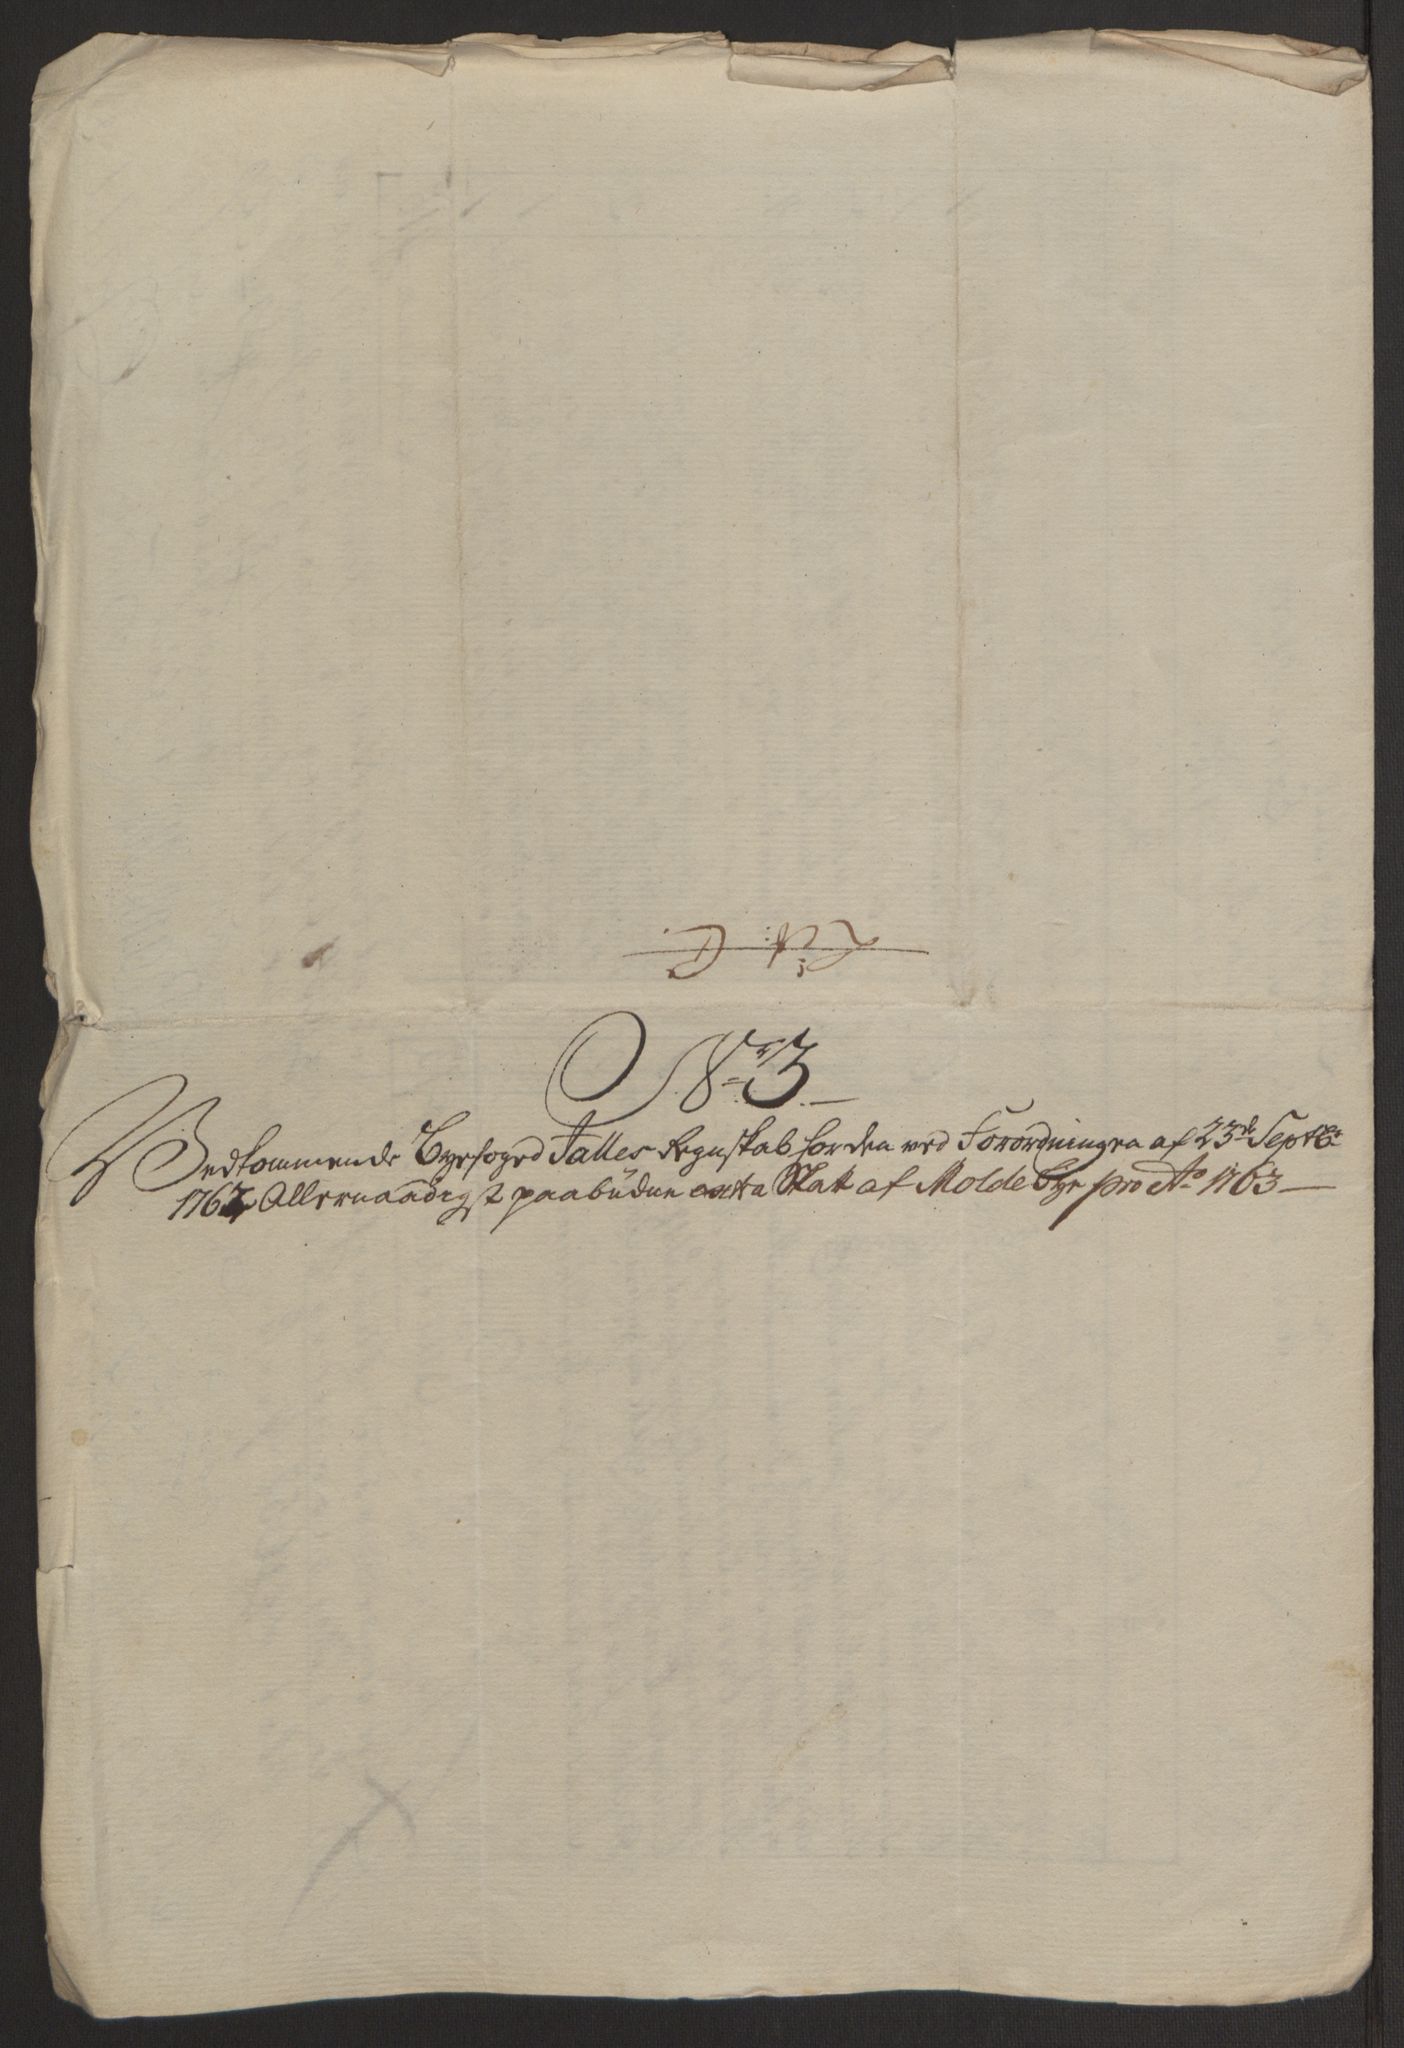 Lit: C.
Nr 3
Vedkommende Byefoged Falles Regnskab for den ved Forordningen af 23de Septbr
1762 Allernaadigst paabudne extra Skatt af Molde Bye pro Ao 1763